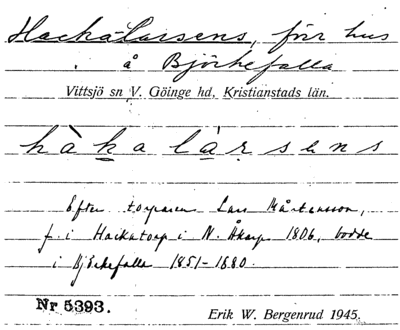 Hacka-Larsens, förr hus
å Björkefalla
Vittsjö sn V. Göinge hd, Kristianstads län.
hàka lársens
Efter torparen Lars Mårtensson,
f. i Hackatorp i N. Åkarp 1806, bodde
i Björkefalla 1851-1880.
Nr 5393.
Erik W. Bergenrud 1945.